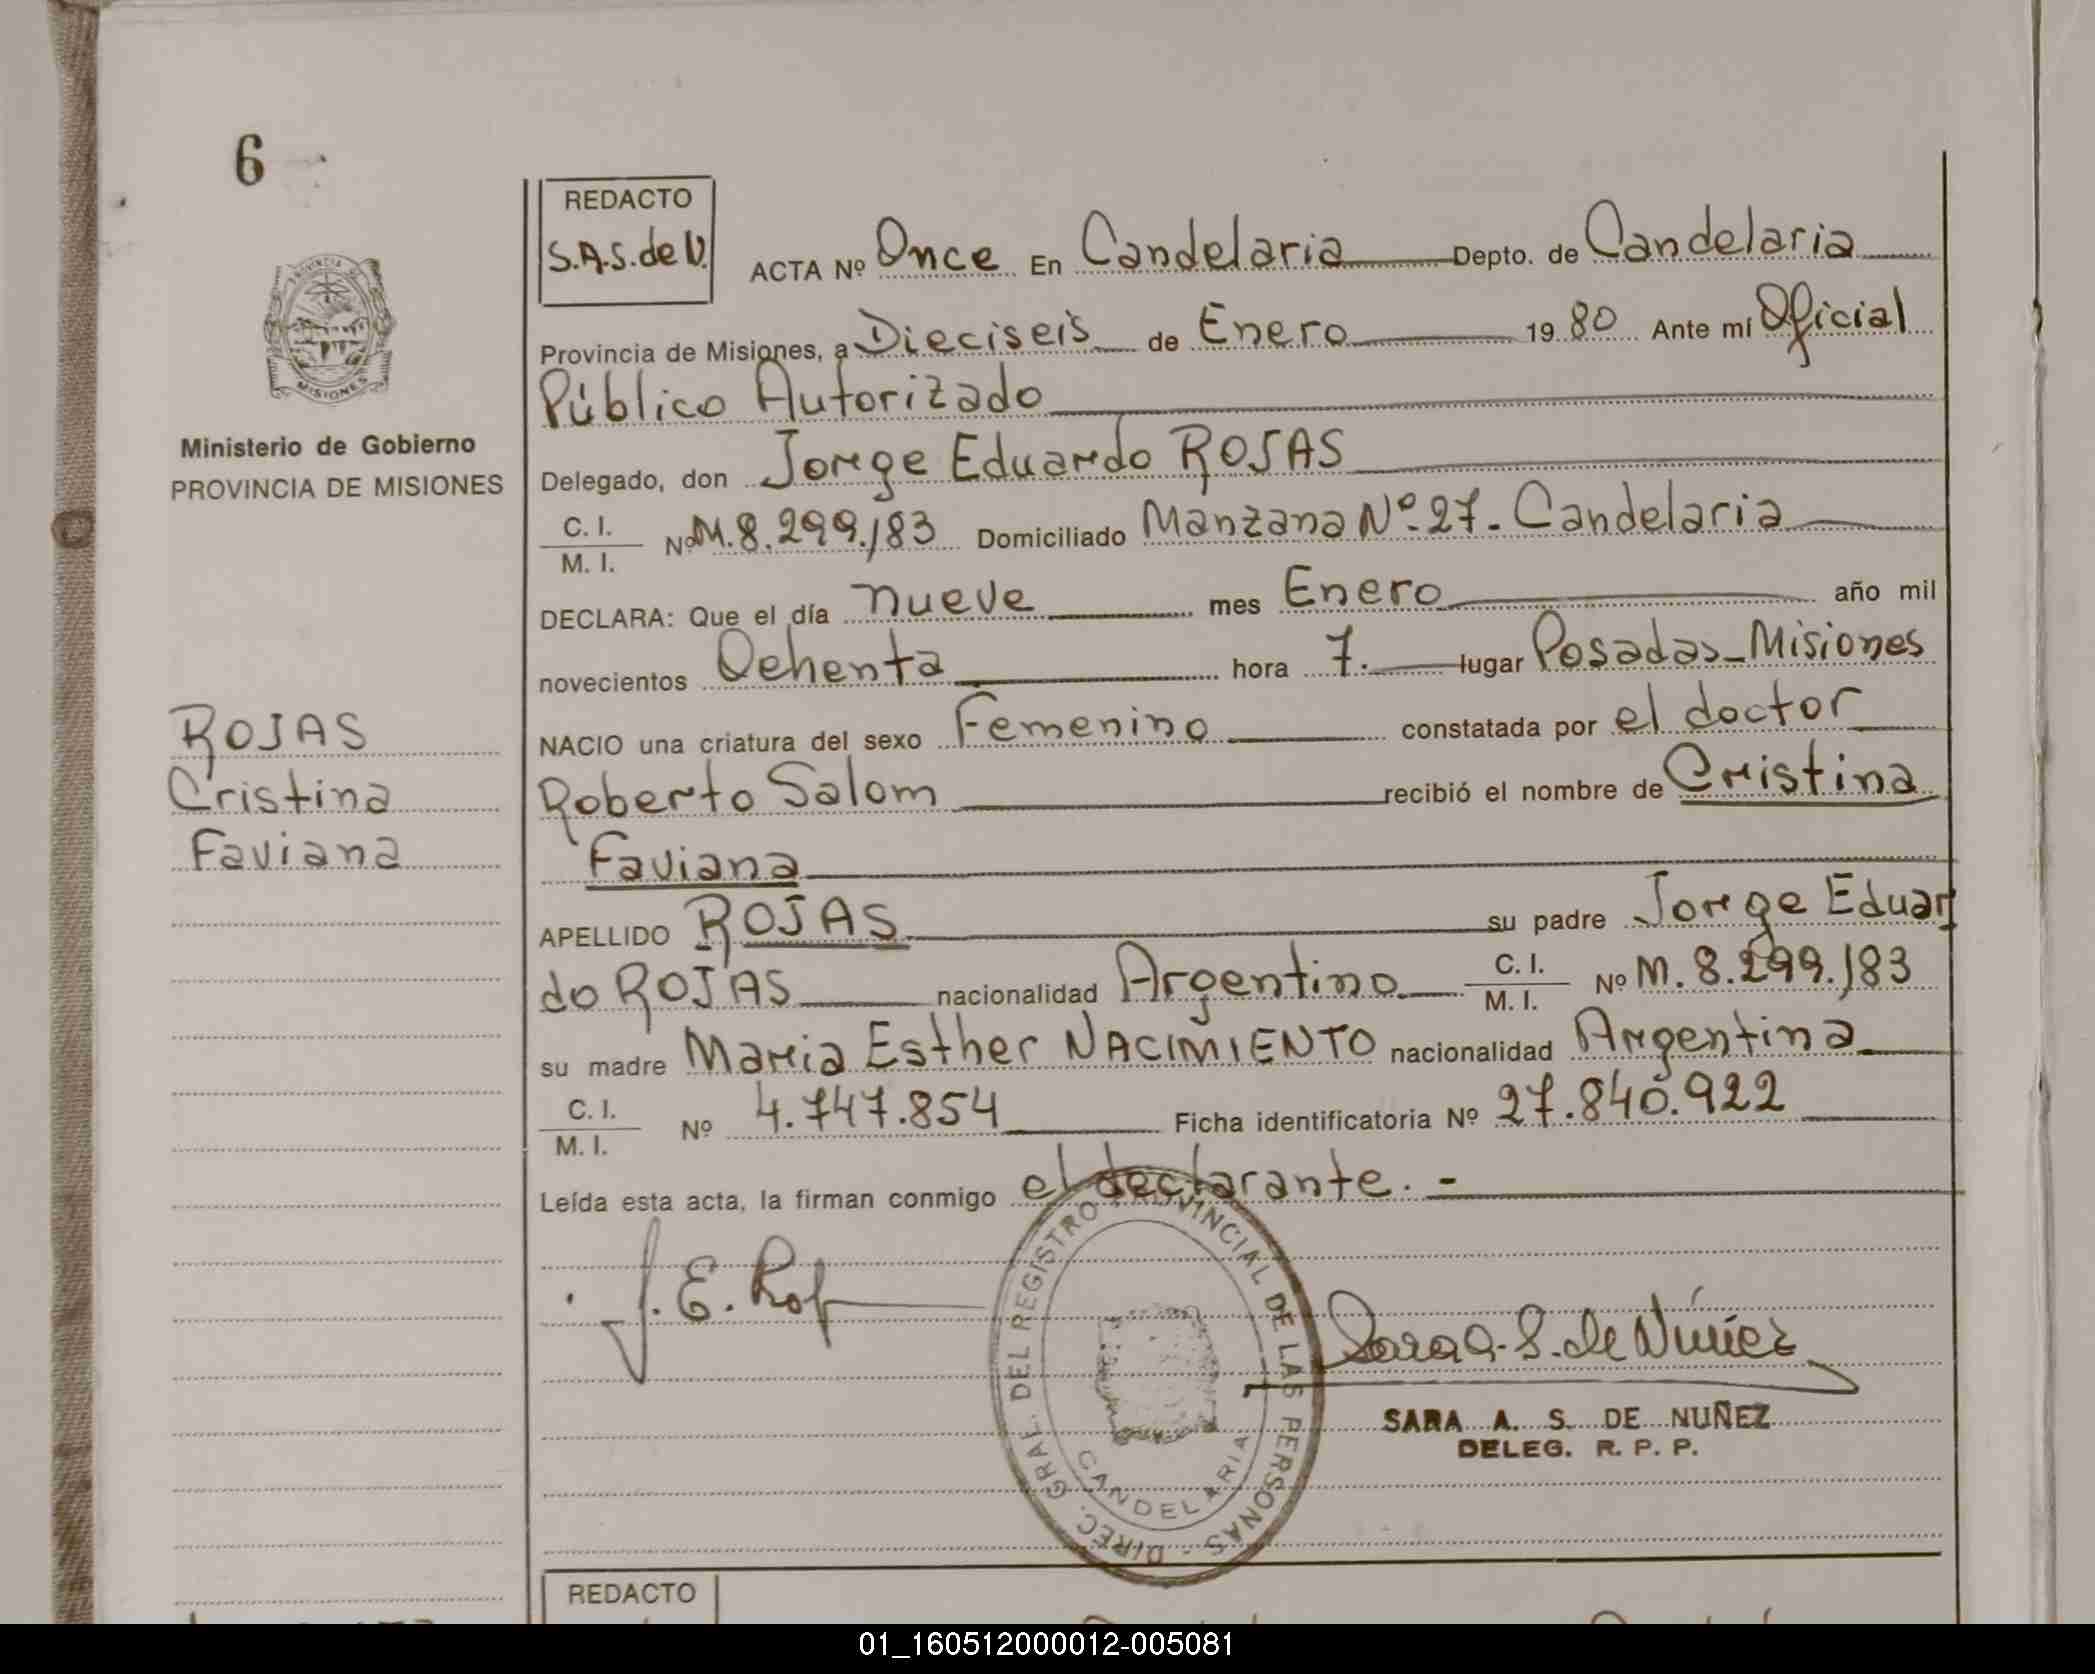 6
REDACTO
S.A.S. de N.
ACTA Nº Once En Candelaria Depto. de Candelaria
PROVINCIA DE
MISIONES
Provincia de Misiones, a Dieciseis de Enero 1980 Ante mí Oficial
Público Autorizado
Ministerio de Gobierno
PROVINCIA DE MISIONES
Delegado, don Jorge Eduardo ROJAS
C. I.
M. I. Nº M. 8.299.183 Domiciliado Manzana Nº 27 - Candelaria
DECLARA: Que el día nueve mes Enero año mil
novecientos Ochenta hora 7. lugar Posadas - Misiones
ROJAS
Cristina
Faviana
NACIO una criatura del sexo Femenino constatada por el doctor
Roberto Salom recibió el nombre de Cristina
Faviana
APELLIDO ROJAS su padre Jorge Eduar
do ROJAS nacionalidad Argentino C. I. M. I. Nº M. 8.299.183
su madre Maria Esther NACIMIENTO nacionalidad Argentina
C. I.
M. I. Nº 4.747.854 Ficha identificatoria Nº 27.840.922
Leída esta acta, la firman conmigo el declarante. -
J. E. Roj
DIREC. GRAL. DEL REGISTRO PROVINCIAL DE LAS PERSONAS -
CANDELARIA
Sara A. S. de Núñez
SARA A. S. DE NUÑEZ
DELEG. R. P. P.
REDACTO
01_160512000012-005081